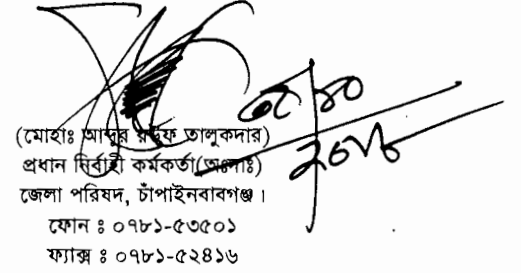 (মোহাঃ আব্দুর রউফ তালুকদার)
প্রধান নির্বাহী কর্মকর্তা(অঃদাঃ)
জেলা পরিষদ, চাঁপাইনবাবগঞ্জ।
ফোন ঃ ০৭৮১-৫৩৫০১
ফ্যাক্স ঃ ০৭৮১-৫২৪১৬